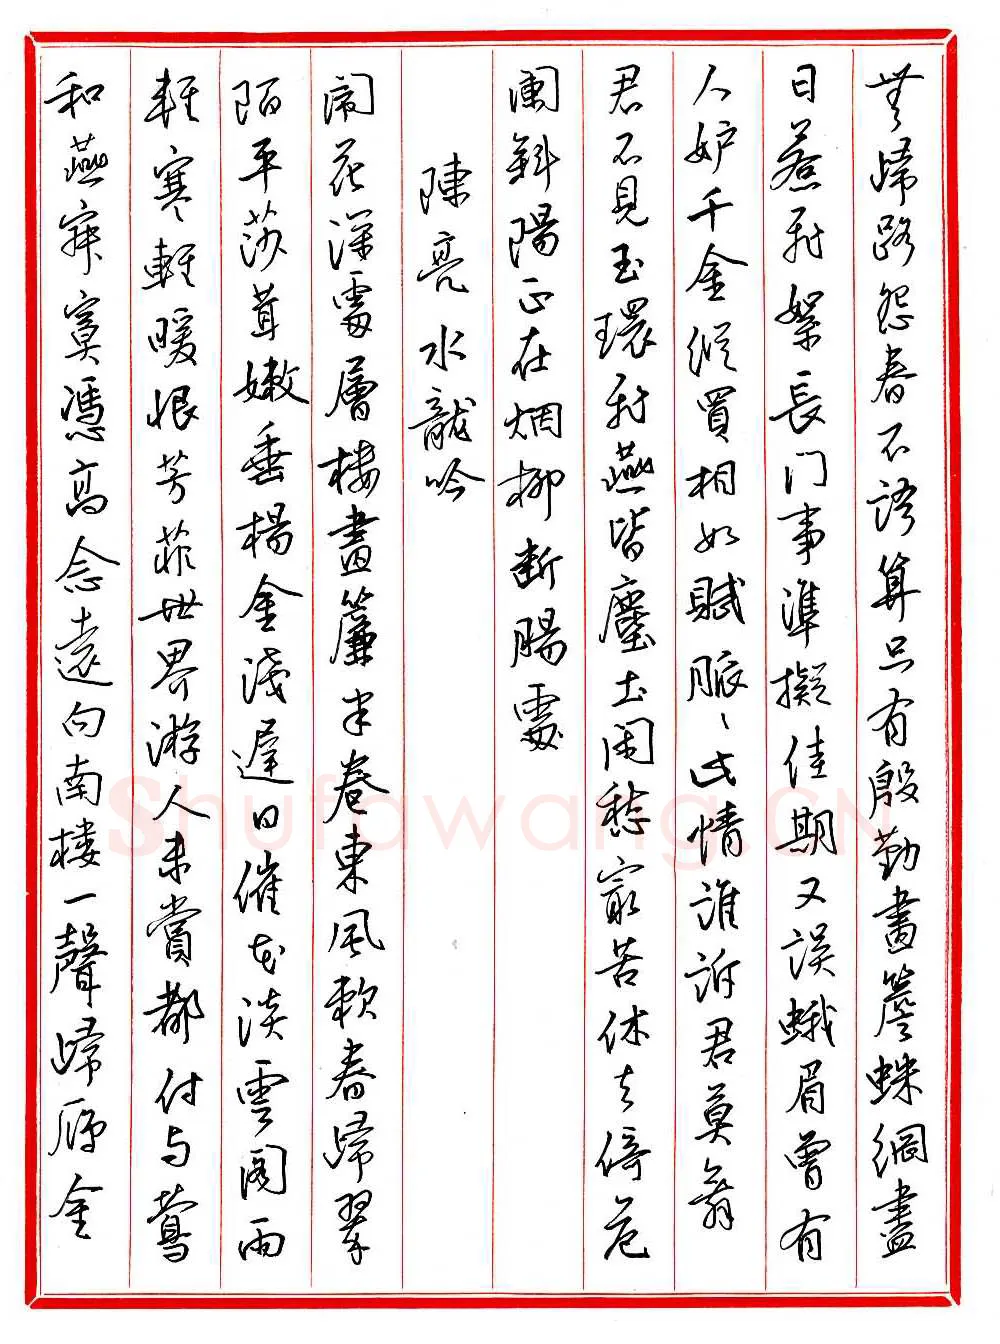 無歸路怨春不語算只有殷勤畫簷蛛網盡
日惹飛絮長門事準擬佳期又誤蛾眉曾有
人妒千金縱買相如賦脈、此情誰訴君莫舞
君不見玉環飛燕皆塵土閑愁最苦休去倚危
闌斜陽正在烟柳斷腸處
陳亮水龍吟
鬧花深處層樓畫簾半卷東風軟春歸翠
陌平莎茸嫩垂楊金淺遲日催花淡雲閣雨
輕寒輕暖恨芳菲世界游人未賞都付与鶯
和燕寂寞憑高念遠向南樓一聲歸雁金
Shufawang.CN